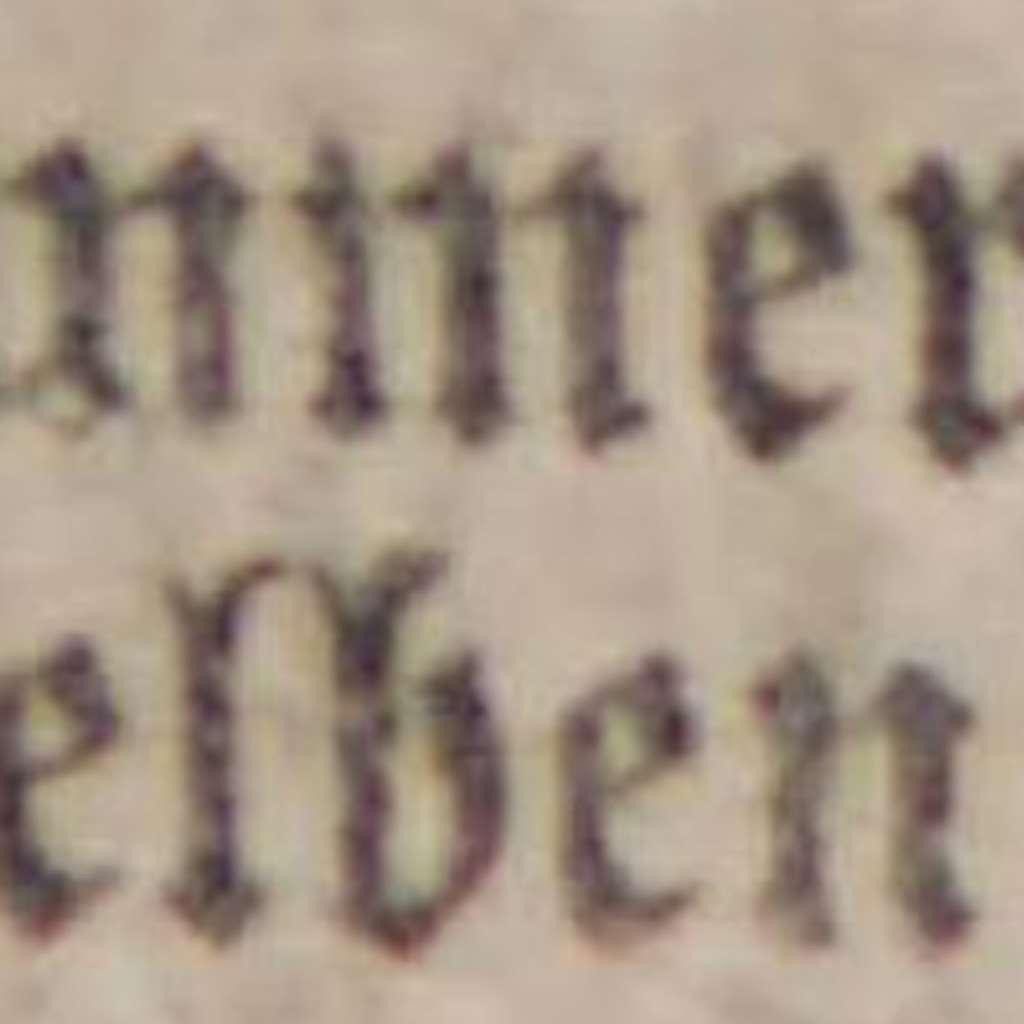 nmer
elben